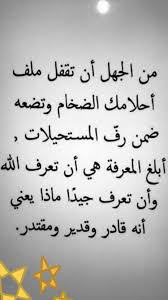 من الجهل أن تقفل ملف
أحلامك الضخام وتضعه
ضمن رفّ المستحيلات ,
أبلغ المعرفة هي أن تعرف الله
وأن تعرف جيدًا ماذا يعني
أنه قادر وقدير ومقتدر.